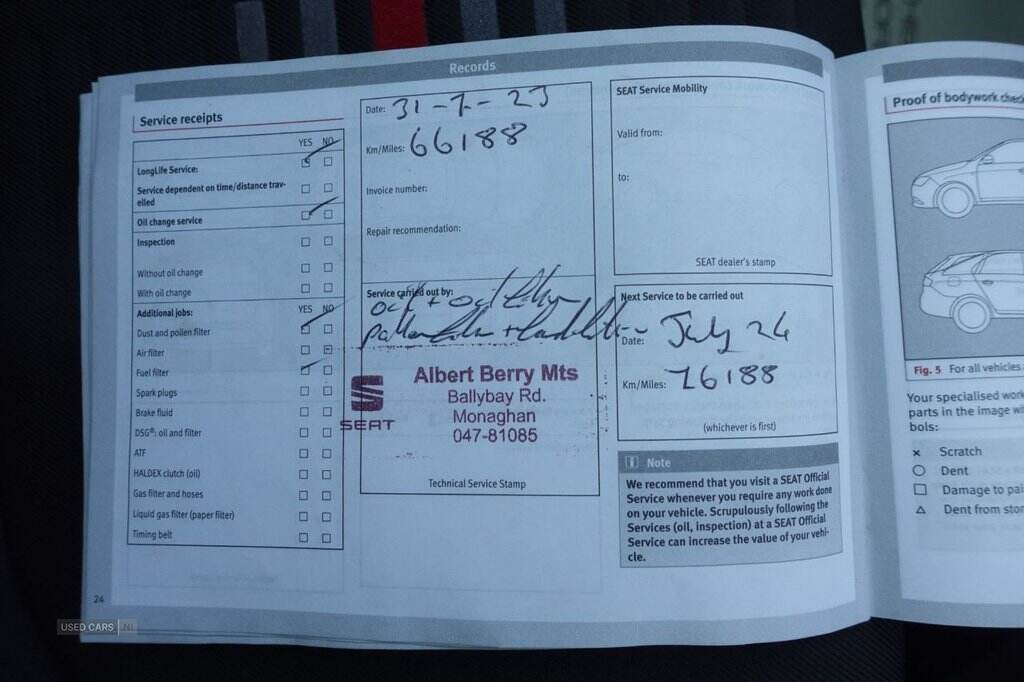 Records
Service receipts
YES NO
LongLife Service:
Service dependent on time/distance trav-
elled
Oil change service
Inspection
Without oil change
With oil change
Additional jobs: YES NO
Dust and pollen filter
Air filter
Fuel filter
Spark plugs
Brake fluid
DSG®: oil and filter
ATF
HALDEX clutch (oil)
Gas filter and hoses
Liquid gas filter (paper filter)
Timing belt
24
Date: 31-7-23
Km/Miles: 66188
Invoice number:
Repair recommendation:
Service carried out by:
SEAT
Albert Berry Mts
Ballybay Rd.
Monaghan
047-81085
Technical Service Stamp
SEAT Service Mobility
Valid from:
to:
SEAT dealer's stamp
Next Service to be carried out
Date: July 24
Km/Miles: 76188
(whichever is first)
Note
We recommend that you visit a SEAT Official
Service whenever you require any work done
on your vehicle. Scrupulously following the
Services (oil, inspection) at a SEAT Official
Service can increase the value of your vehi-
cle.
Proof of bodywork
Fig. 5 For all vehicles
Your specialised
parts in the image
bols:
× Scratch
○ Dent
□ Damage to
△ Dent from
USED CARS NI